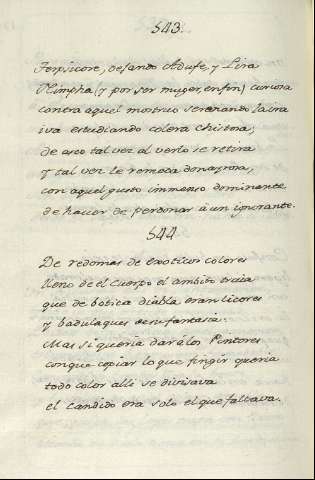 543.
Terpsicore, dejando Adufe, y Lira
Nimpha (y por ser muger, enfin) curiosa
contra aquel monstruo serenando la ira
iva estudiando colera chistosa;
de asco tal vez al verlo se retira
y tal vez le remeda donayrosa,
con aquel gusto immenso dominante
de hacer de personas à un ignorante.
544
De redomas de exoticos colores
lleno de el cuerpo el ambito traìa
que de botica diabla eran licores
y badulaques de su fantasìa:
Mas si queria dar à los Pintores
con que copiar lo que fingir queria
todo color alli se divisava
el candido era solo el que faltava.